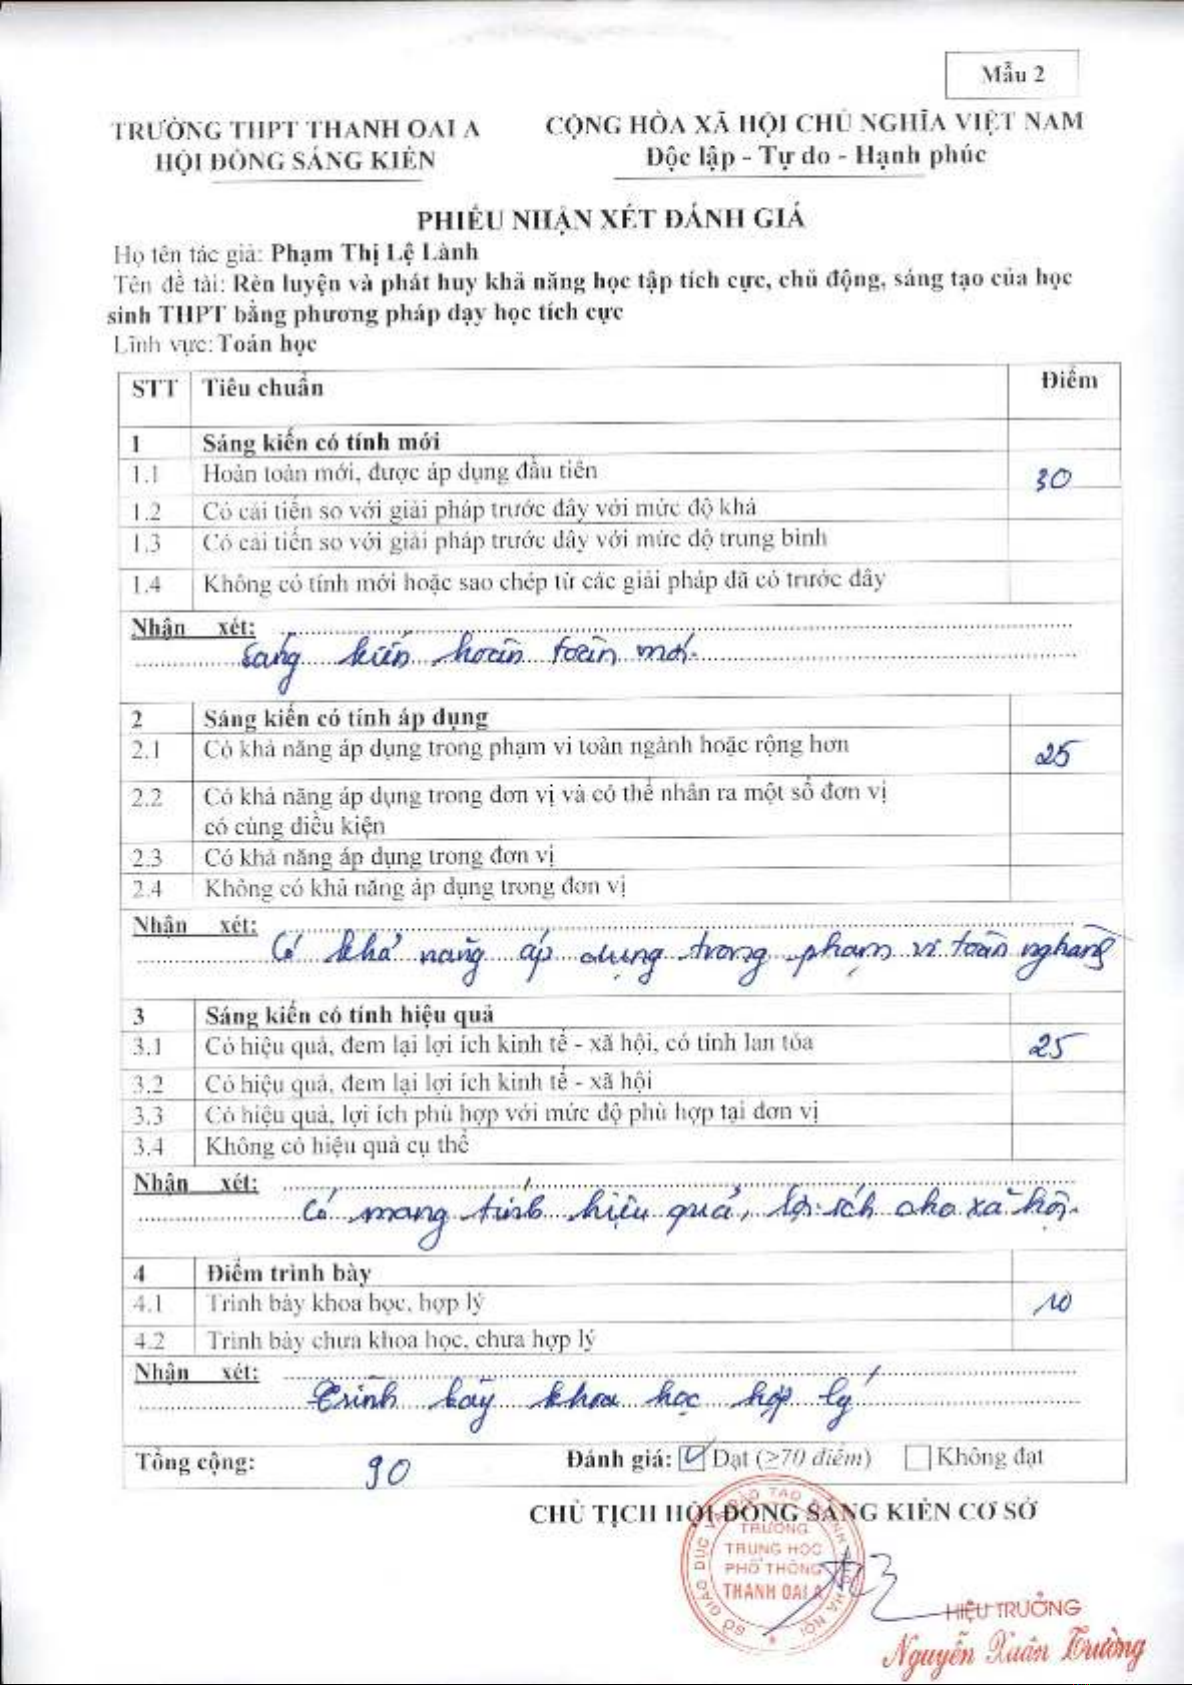 Mẫu 2
TRƯỜNG THPT THANH OAI A
HỘI ĐỒNG SÁNG KIẾN
CỘNG HÒA XÃ HỘI CHỦ NGHĨA VIỆT NAM
Độc lập - Tự do - Hạnh phúc
PHIẾU NHẬN XÉT ĐÁNH GIÁ
Họ tên tác giả: Phạm Thị Lệ Lành
Tên đề tài: Rèn luyện và phát huy khả năng học tập tích cực, chủ động, sáng tạo của học
sinh THPT bằng phương pháp dạy học tích cực
Lĩnh vực: Toán học
STT Tiêu chuẩn Điểm
1 Sáng kiến có tính mới
1.1 Hoàn toàn mới, được áp dụng đầu tiên 30
1.2 Có cải tiến so với giải pháp trước đây với mức độ khá
1.3 Có cải tiến so với giải pháp trước đây với mức độ trung bình
1.4 Không có tính mới hoặc sao chép từ các giải pháp đã có trước đây
Nhận xét:
Sáng kiến hoàn toàn mới.
2 Sáng kiến có tính áp dụng
2.1 Có khả năng áp dụng trong phạm vi toàn ngành hoặc rộng hơn 25
2.2 Có khả năng áp dụng trong đơn vị và có thể nhân ra một số đơn vị
có cùng điều kiện
2.3 Có khả năng áp dụng trong đơn vị
2.4 Không có khả năng áp dụng trong đơn vị
Nhận xét:
Có khả năng áp dụng trong phạm vi toàn nghành
3 Sáng kiến có tính hiệu quả
3.1 Có hiệu quả, đem lại lợi ích kinh tế - xã hội, có tính lan tỏa 25
3.2 Có hiệu quả, đem lại lợi ích kinh tế - xã hội
3.3 Có hiệu quả, lợi ích phù hợp với mức độ phù hợp tại đơn vị
3.4 Không có hiệu quả cụ thể
Nhận xét:
Có mang tính hiệu quả, lợi ích cho xã hội.
4 Điểm trình bày
4.1 Trình bày khoa học, hợp lý 10
4.2 Trình bày chưa khoa học, chưa hợp lý
Nhận xét:
Trình bày khoa học hợp lý
Tổng cộng: 90 Đánh giá: Đạt (≥70 điểm) Không đạt
CHỦ TỊCH HỘI ĐỒNG SÁNG KIẾN CƠ SỞ
SỞ GIÁO DỤC VÀ ĐÀO TẠO THÀNH PHỐ HÀ NỘI
TRƯỜNG
TRUNG HỌC
PHỔ THÔNG
THANH OAI A
HIỆU TRƯỞNG
Nguyễn Xuân Trường